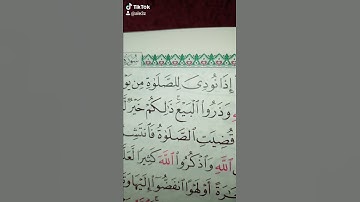 TikTok
سُورَة
إِذَا نُودِيَ لِلصَّلَوٰةِ مِن
وَذَرُوا۟ ٱلْبَيْعَ ذَٰلِكُمْ خَيْرٌ
قُضِيَتِ ٱلصَّلَوٰةُ
ٱللَّهِ وَٱذْكُرُوا۟ ٱللَّهَ كَثِيرًا
أَوْ لَهْوًا ٱنفَضُّوٓا۟ إِلَيْهَا